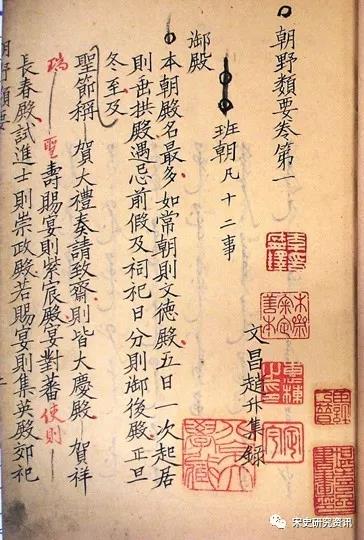 朝野類要卷第一
文昌趙升集錄
班朝凡十二事
御殿
本朝殿名最多如常朝則文德殿五日一次起居
則垂拱殿遇忌前假及祠祀日分則御後殿正旦
冬至及
聖節稱賀大禮奏請致齋則皆大慶殿賀祥
瑞聖壽賜宴則紫宸殿宴對蕃使則
長春殿試進士則崇政殿若賜宴則集英殿郊祀
朝野類要
宋史研究资讯